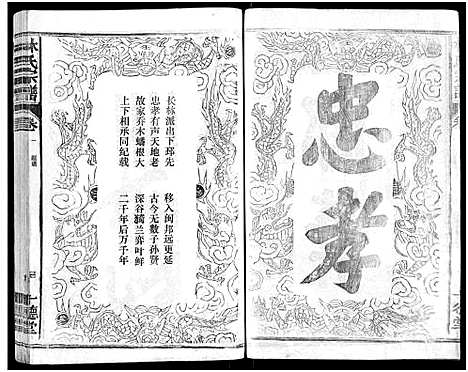 忠孝
长林派出下邳先
移入闽邦远更延
忠孝有声天地老
古今无数子孙贤
故家乔木蟠根大
深谷猗兰奕叶鲜
上下相承同纪载
二千年后万千年
林氏宗谱
卷一
十德堂